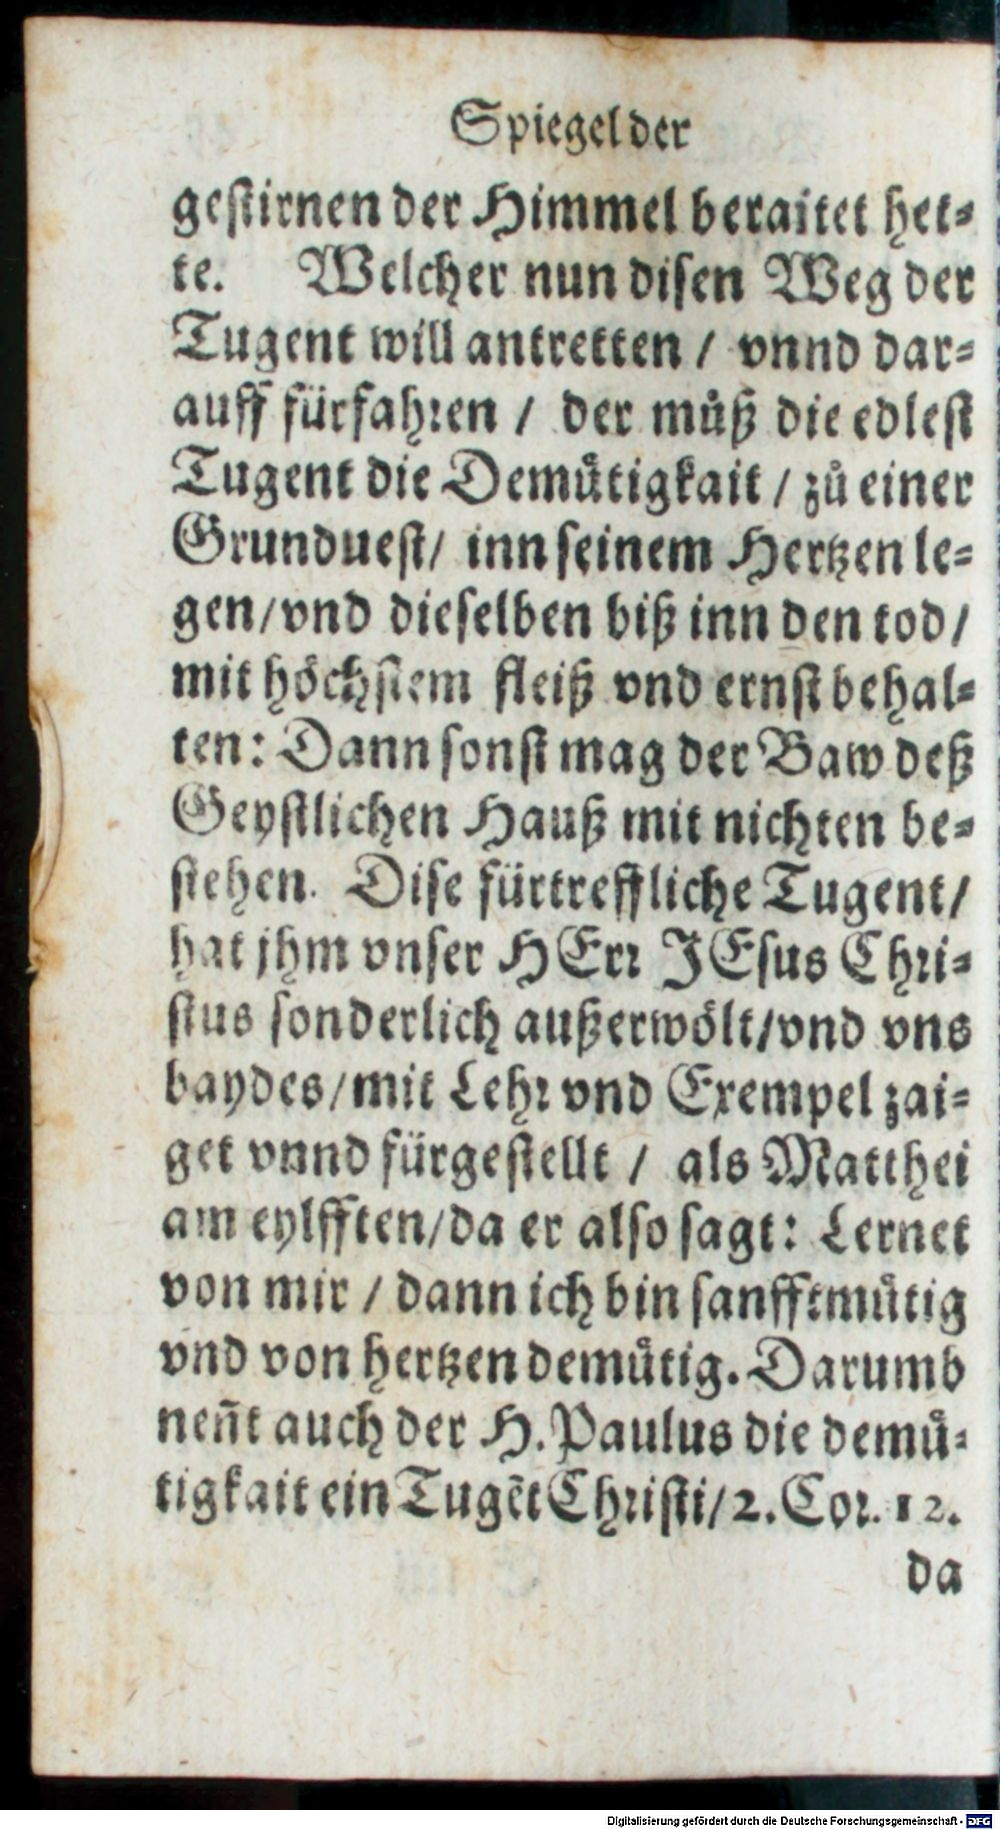 Spiegel der
gestirnen der Himmel beraitet het-
te. Welcher nun disen Weg der
Tugent will antretten / vnnd dar-
auff fürfahren / der můß die edlest
Tugent die Demůtigkait / zů einer
Grunduest / inn seinem Hertzen le-
gen / vnd dieselben biß inn den tod /
mit höchstem fleiß vnd ernst behal-
ten: Dann sonst mag der Baw deß
Geystlichen Hauß mit nichten be-
stehen. Dise fürtreffliche Tugent /
hat jhm vnser HErr JEsus Chri-
stus sonderlich außerwölt / vnd vns
baydes / mit Lehr vnd Exempel zai-
get vnnd fürgestellt / als Matthei
am eylfften / da er also sagt: Lernet
von mir / dann ich bin sanfftmůtig
vnd von hertzen demůtig. Darumb
nen̄t auch der H. Paulus die demů-
tigkait ein Tugēt Christi / 2. Cor. 12.
da
Digitalisierung gefördert durch die Deutsche Forschungsgemeinschaft - DFG